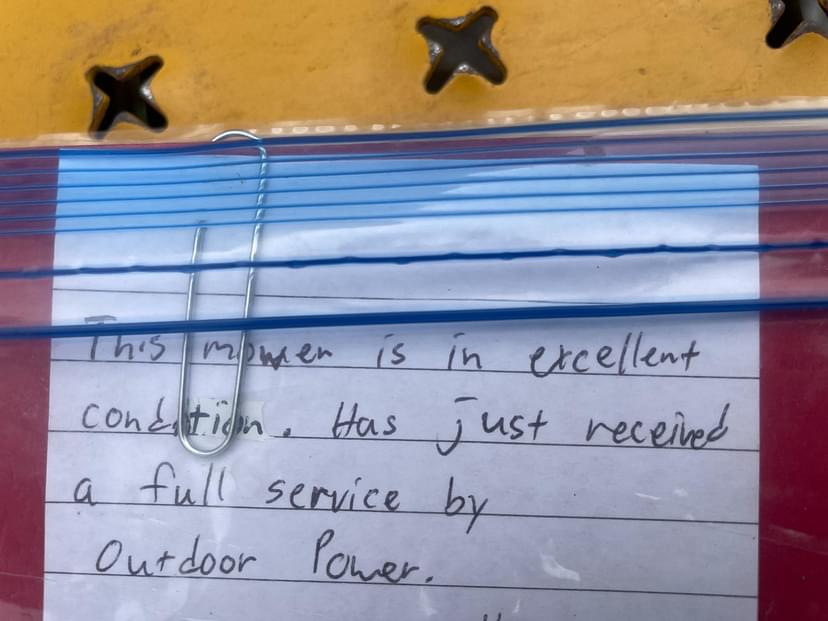 This mower is in excellent
condition. Has just received
a full service by
Outdoor Power.